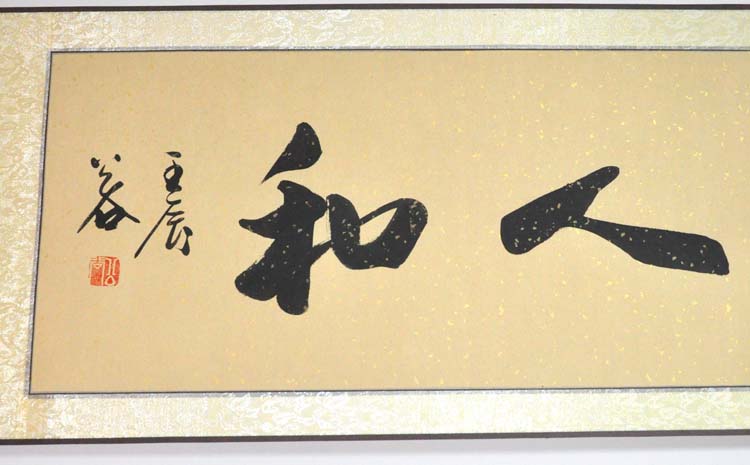 人和
壬辰